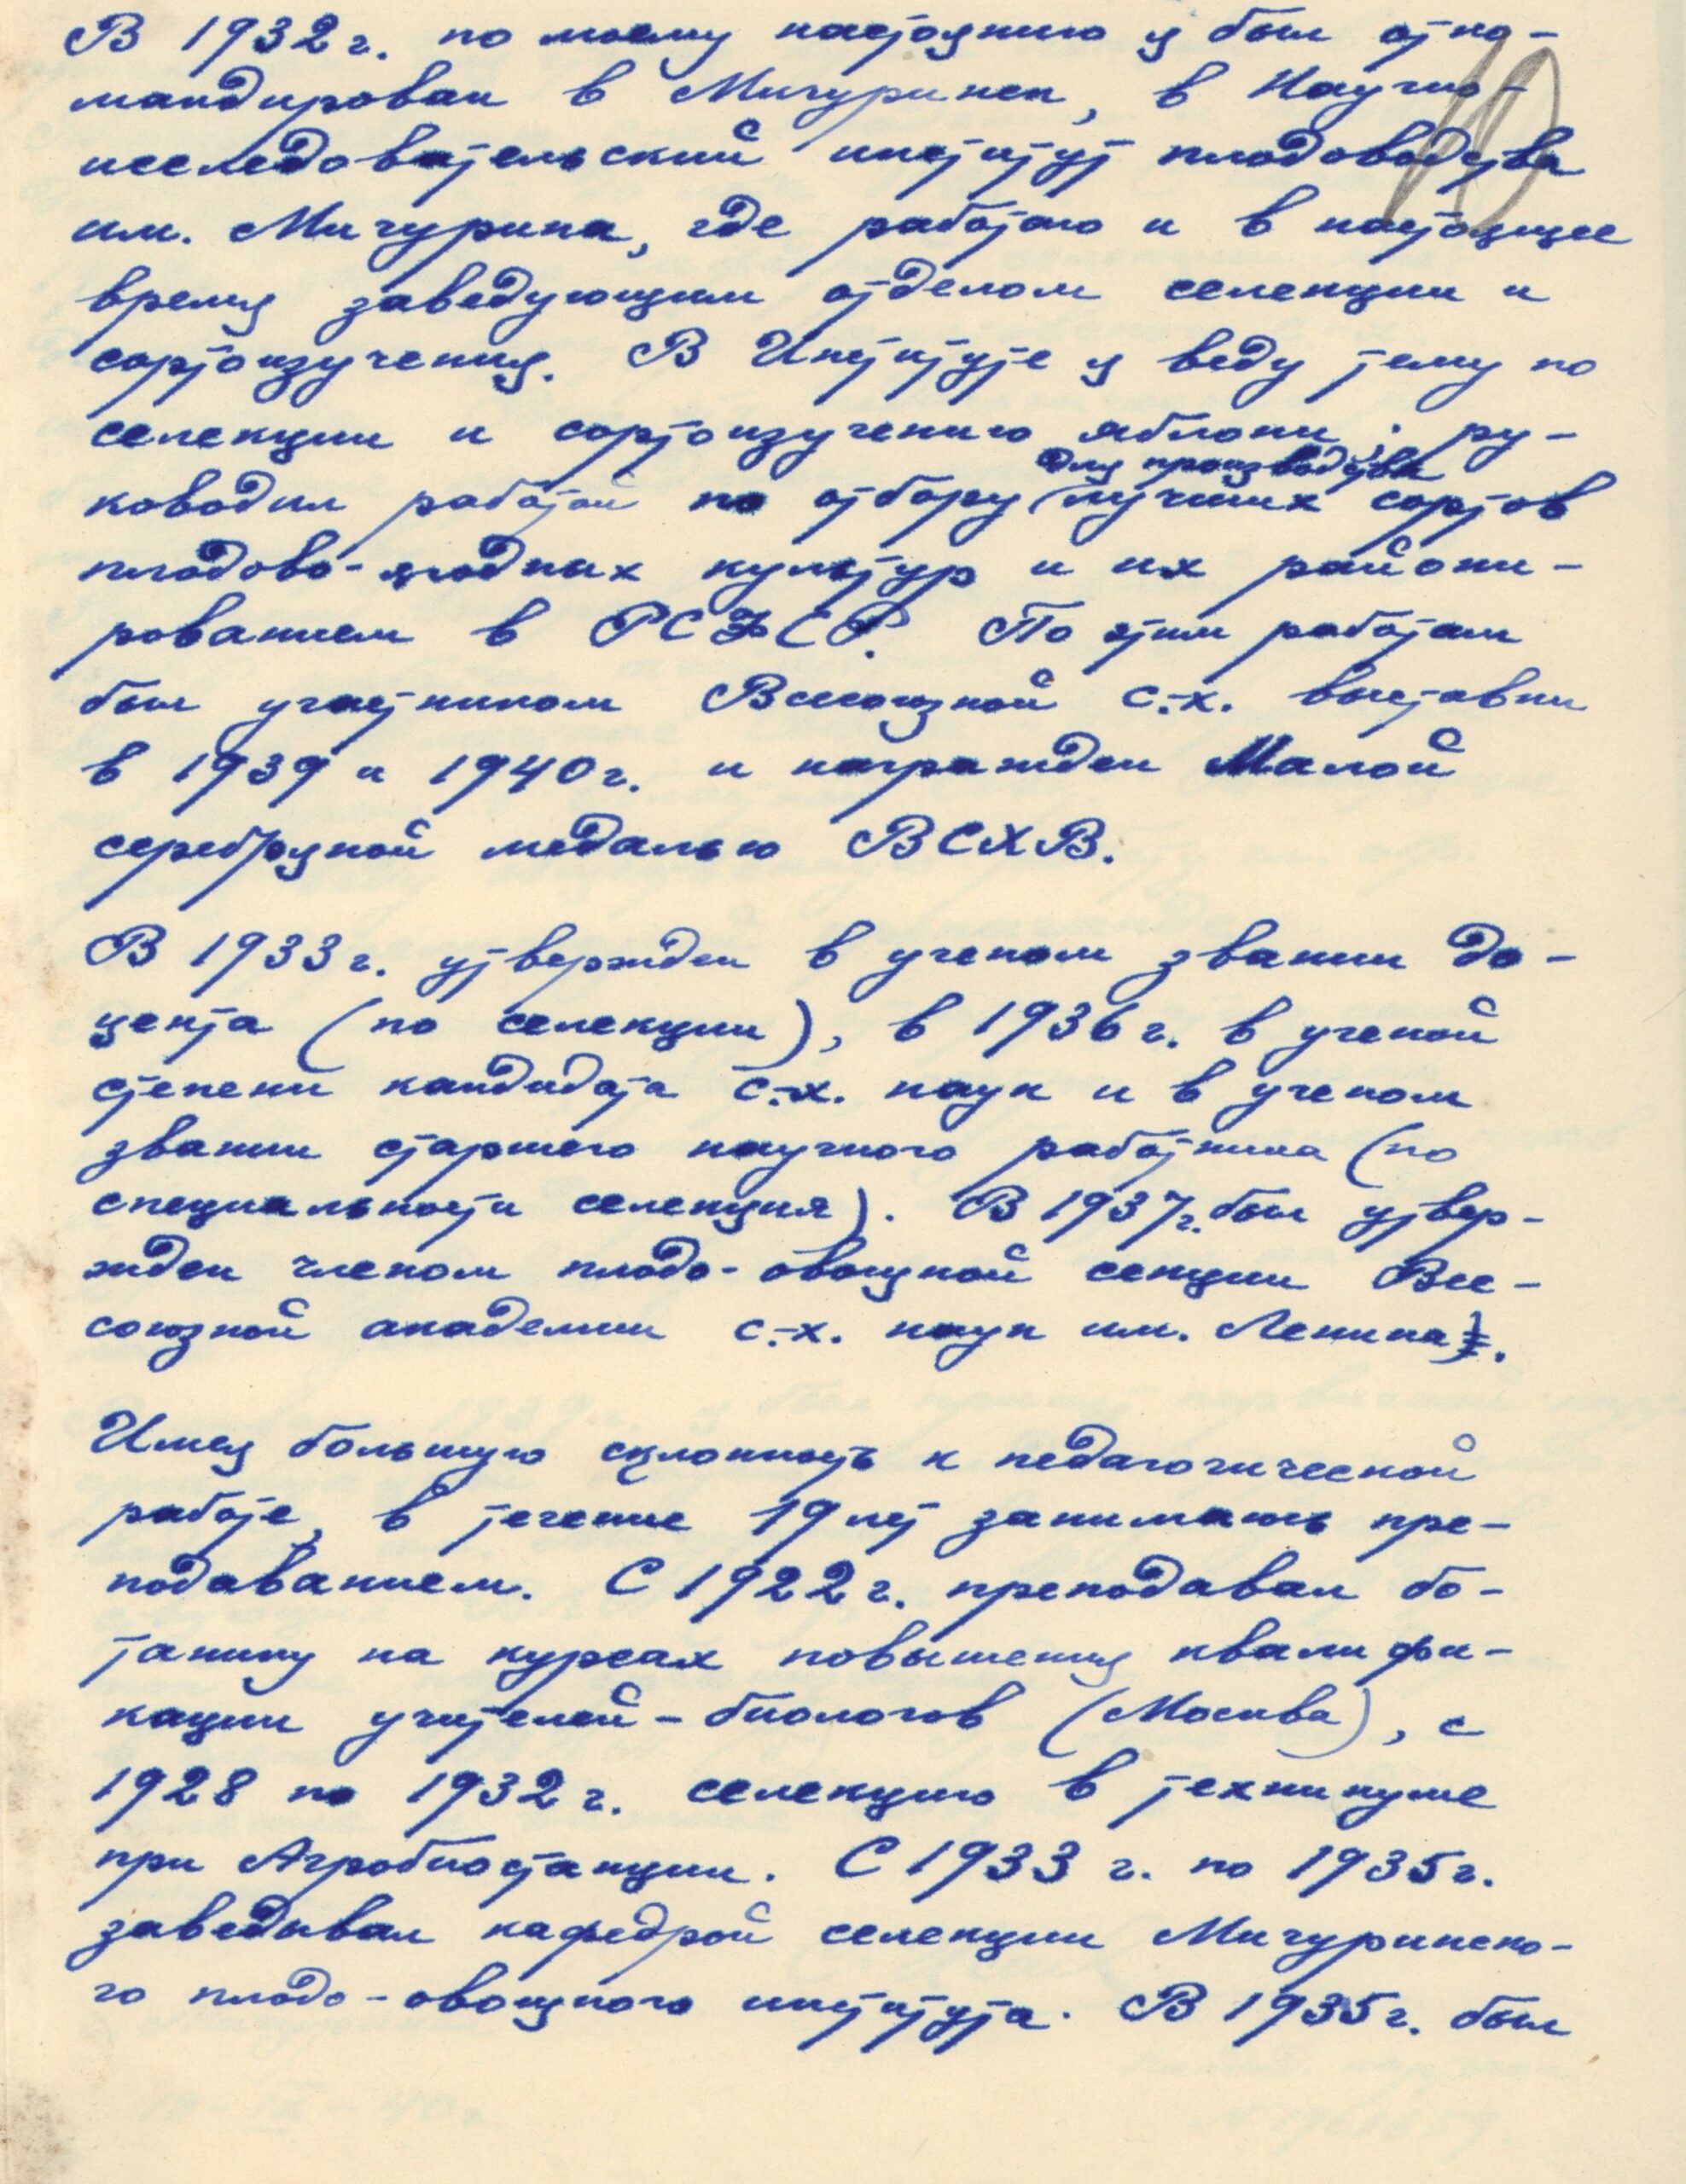 В 1932 г. по моему настоянию я был отко-
мандирован в Мичуринск, в Научно-
10
исследовательский институт плодоводства
им. Мичурина, где работаю и в настоящее
время заведующим отделом селекции и
сортоизучения. В Институте я веду тему по
селекции и сортоизучению яблони; ру-
для производства
ководил работой по отбору лучших сортов
плодово-ягодных культур и их райони-
рованием в РСФСР. По этим работам
был участником Всесоюзной с.-х. выставки
в 1939 и 1940 г. и награжден Малой
серебряной медалью ВСХВ.
В 1933 г. утвержден в ученом звании до-
цента (по селекции), в 1936 г. в ученой
степени кандидата с.-х. наук и в ученом
звании старшего научного работника (по
специальности селекция). В 1937 г. был утвер-
жден членом плодо-овощной секции Все-
союзной академии с.-х. наук им. Ленина.
Имея большую склонность к педагогической
работе, в течение 19 лет занимаюсь пре-
подаванием. С 1922 г. преподавал бо-
танику на курсах повышения квалифи-
кации учителей-биологов (Москва), с
1928 по 1932 г. селекцию в техникуме
при Агробиостанции. С 1933 г. по 1935 г.
заведывал кафедрой селекции Мичуринско-
го плодо-овощного института. В 1935 г. был